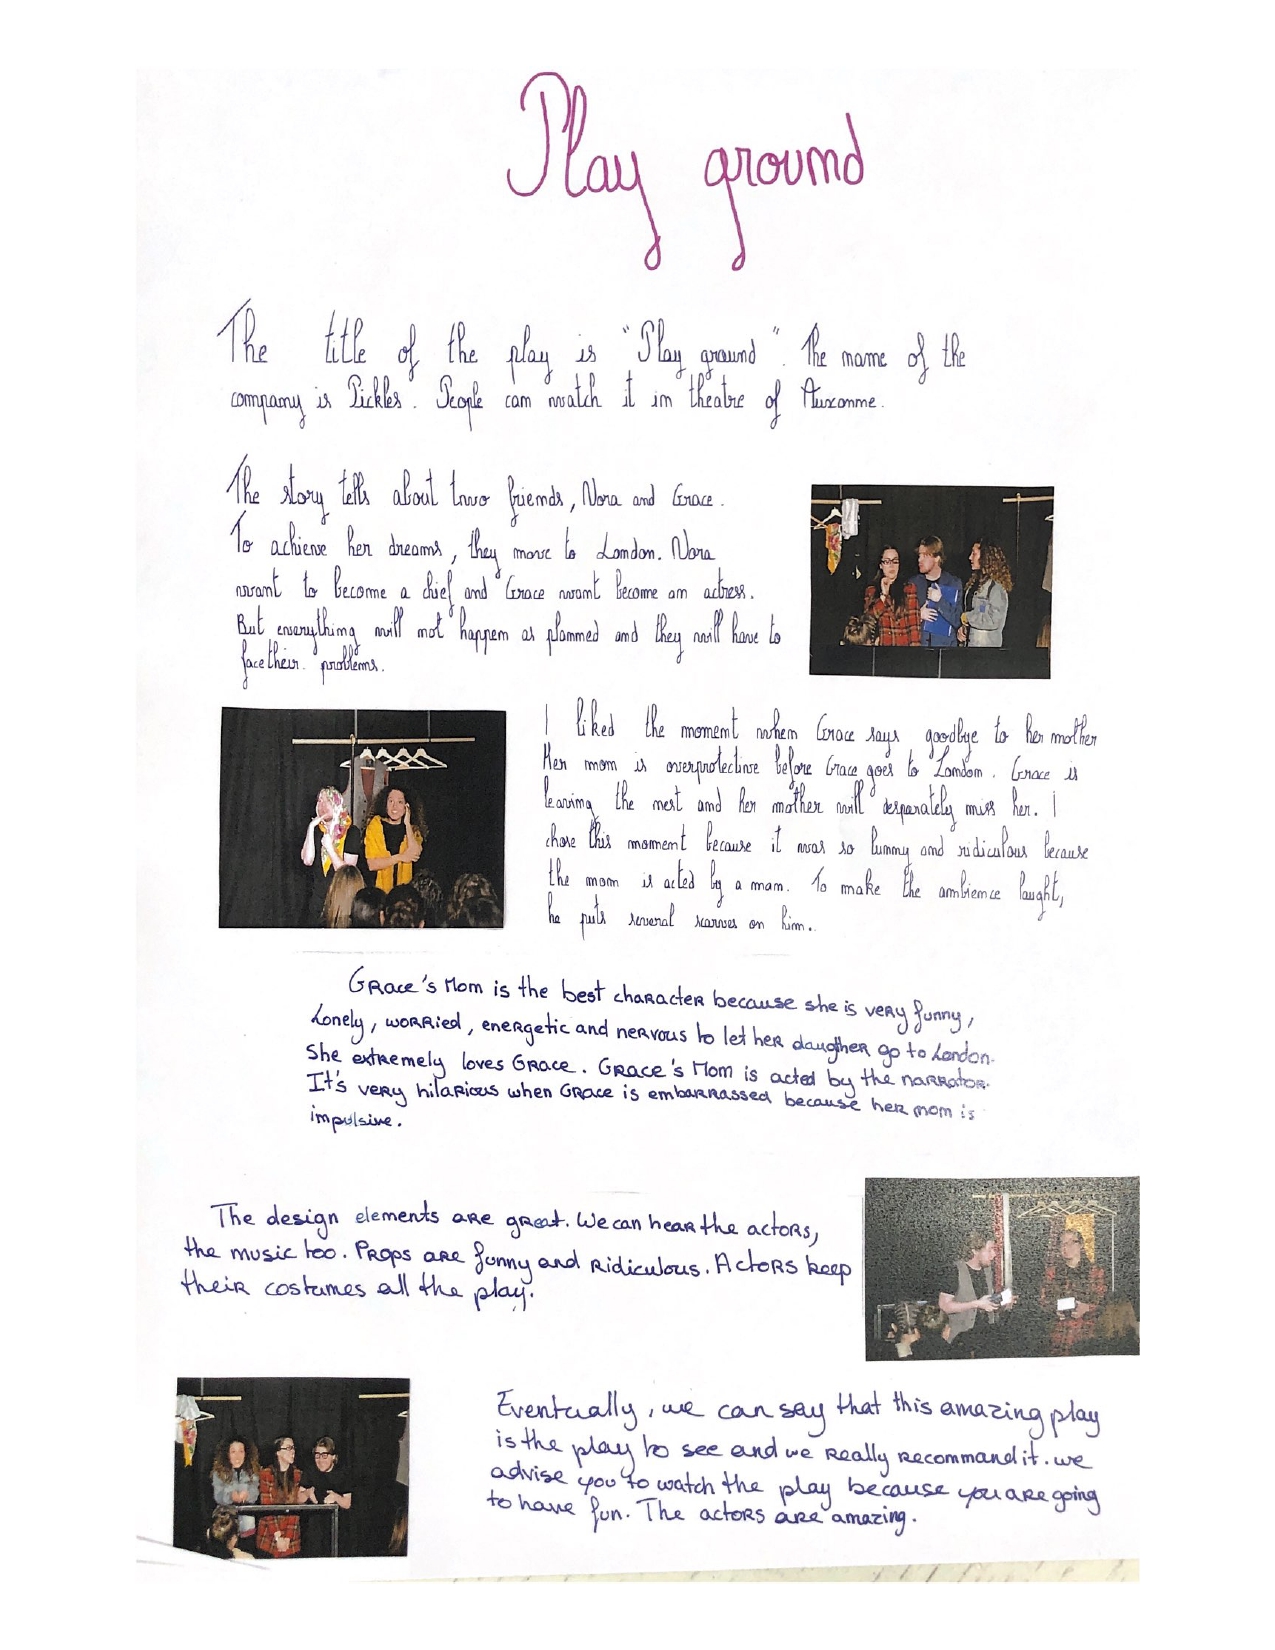 Play ground
The title of the play is "Play ground". The name of the
company is Pickles. People can watch it in theatre of Auxonne.
The story tells about two friends, Nora and Grace.
To achieve her dreams, they move to London. Nora
want to become a chief and Grace want become an actress.
But everything will not happen as planned and they will have to
face their problems.
I liked the moment when Grace says goodbye to her mother
Her mom is overprotective before Grace goes to London. Grace is
leaving the nest and her mother will desparately miss her. I
chose this moment because it was so funny and ridiculous because
the mom is acted by a man. To make the ambience laught,
he puts several scarves on him..
Grace's Mom is the best character because she is very funny,
Lonely, worried, energetic and nervous to let her daugther go to London.
She extremely loves Grace. Grace's Mom is acted by the narrator.
It's very hilarious when Grace is embarrassed because her mom is
impulsive.
The design elements are great. We can hear the actors,
the music too. Props are funny and ridiculous. Actors keep
their costumes all the play.
Eventually, we can say that this amazing play
is the play to see and we really recommand it. we
advise you to watch the play because you are going
to have fun. The actors are amazing.